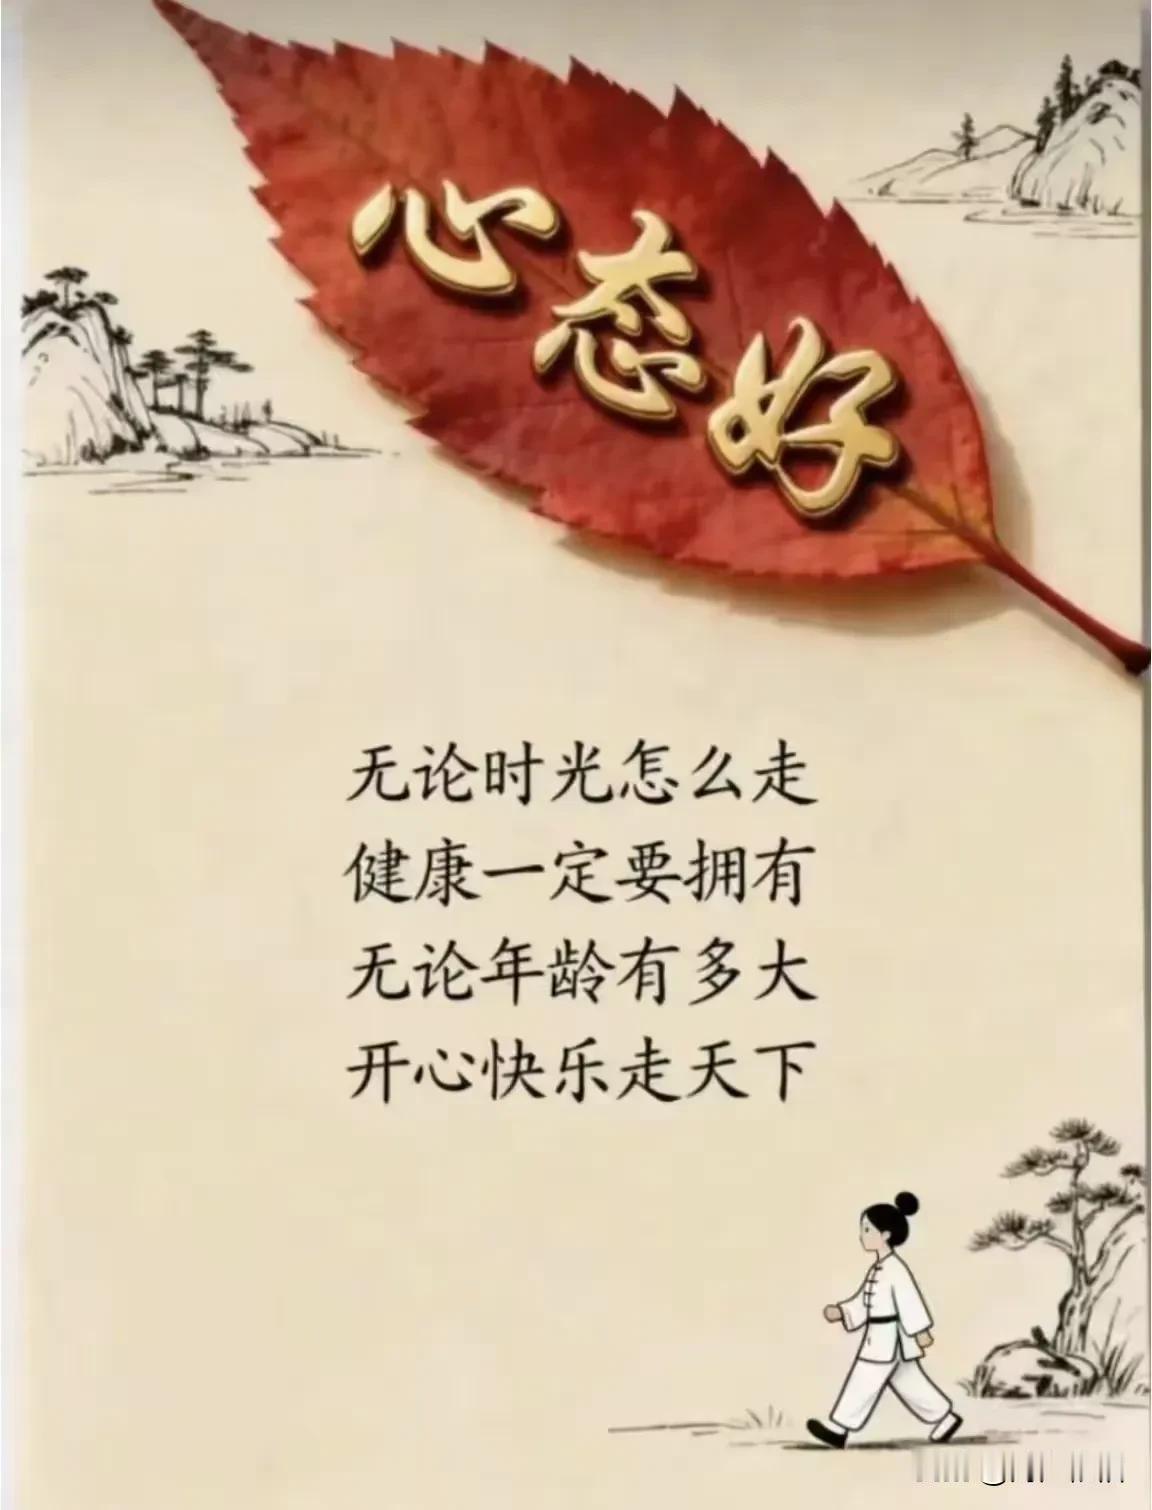 心态好
无论时光怎么走
健康一定要拥有
无论年龄有多大
开心快乐走天下